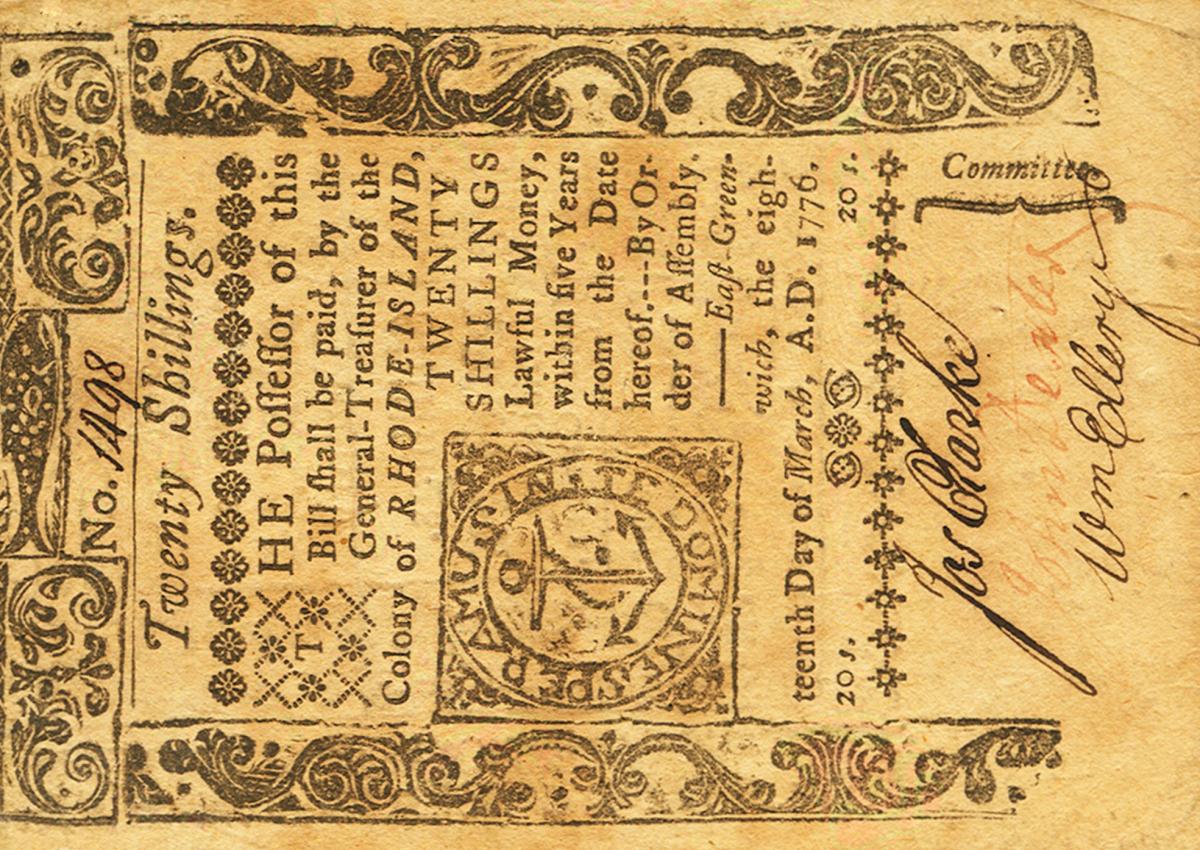 No. 1498
Twenty Shillings.
THE Poſſeſſor of this
Bill ſhall be paid, by the
General-Treaſurer of the
Colony of RHODE-ISLAND,
TWENTY
SHILLINGS
Lawful Money,
within five Years
from the Date
hereof.---By Or-
der of Aſſembly.
——Eaſt-Green-
wich, the eigh-
teenth Day of March, A.D. 1776.
20 s. 20 s.
IN TE DOMINE SPERAMUS
Committee
Jos Clarke
John Dexter
Wm Ellery